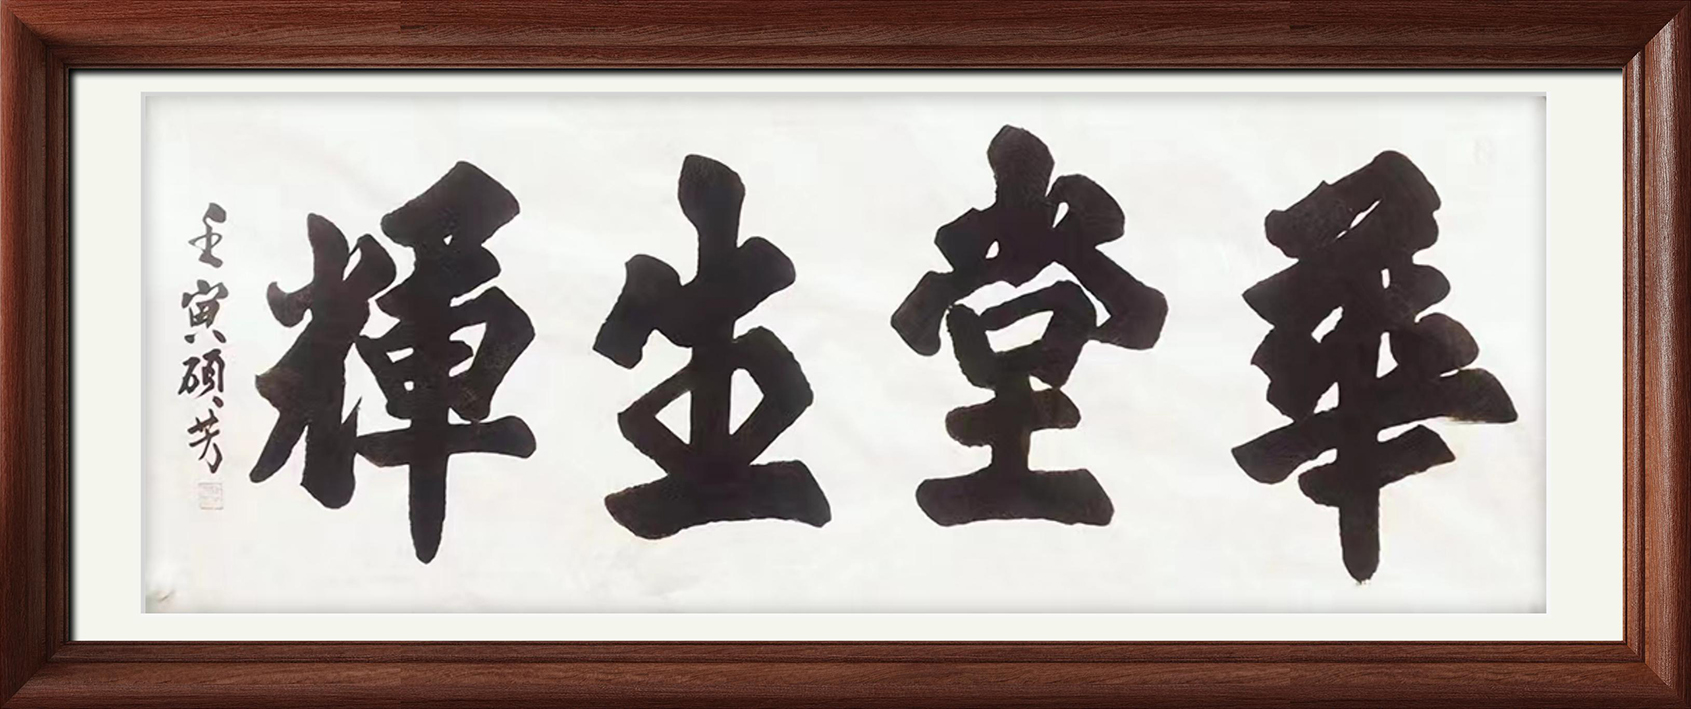 華堂生輝
壬寅碩芳